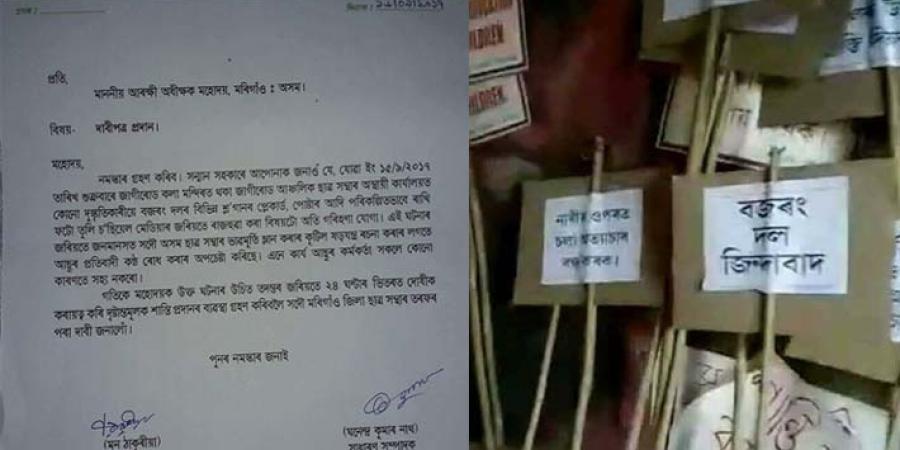 প্ৰতি,
মাননীয় আৰক্ষী অধীক্ষক মহোদয়, মৰিগাঁও ঃ অসম।
বিষয়- দাবীপত্ৰ প্ৰদান।
মহোদয়,
নমস্কাৰ গ্ৰহণ কৰিব। সন্মান সহকাৰে আপোনাক জনাওঁ যে, যোৱা ইং ১৫/৯/২০১৭
তাৰিখ শুক্ৰবাৰে জাগীৰোড কলা মন্দিৰত থকা জাগীৰোড আঞ্চলিক ছাত্ৰ সন্থাৰ অস্থায়ী কাৰ্যালয়ত
কোনো দুষ্কৃতিকাৰীয়ে বজৰং দলৰ বিভিন্ন শ্ল'গানৰ প্লেকাৰ্ড, পোষ্টাৰ আদি পৰিকল্পিতভাৱে ৰাখি
ফটো তুলি চ'ছিয়েল মেডিয়াৰ জৰিয়তে ৰাজহুৱা কৰা বিষয়টো অতি গৰিহণা যোগ্য। এই ঘটনাৰ
জৰিয়তে জনমানসত সদৌ অসম ছাত্ৰ সন্থাৰ ভাৱমূৰ্তি ম্লান কৰাৰ কূটিল ষড়যন্ত্ৰ ৰচনা কৰাৰ লগতে
আছুৰ প্ৰতিবাদী কণ্ঠ ৰোধ কৰাৰ অপচেষ্টা কৰিছে। এনে কাৰ্য আছুৰ কৰ্মকৰ্তা সকলে কোনো
কাৰণতে সহ্য নকৰো।
গতিকে মহোদয়ক উক্ত ঘটনাৰ উচিত তদন্তৰ জৰিয়তে ২৪ ঘণ্টাৰ ভিতৰত দোষীক
কৰায়ত্ব কৰি দৃষ্টান্তমূলক শাস্তি প্ৰদানৰ ব্যৱস্থা গ্ৰহণ কৰিবলৈ সদৌ মৰিগাঁও জিলা ছাত্ৰ সন্থাৰ তৰফৰ
পৰা দাবী জনালোঁ।
পুনৰ নমস্কাৰ জনাই
(মন ঠাকুৰীয়া)
(ঘনেন্দ্ৰ কুমাৰ নাথ)
সাধাৰণ সম্পাদক
EDUCATION
CHILDREN
CHILDREN.
নাৰীৰ ওপৰত
চলা অত্যাচাৰ
বন্ধ কৰক।
বজৰং
দল
জিন্দাবাদ